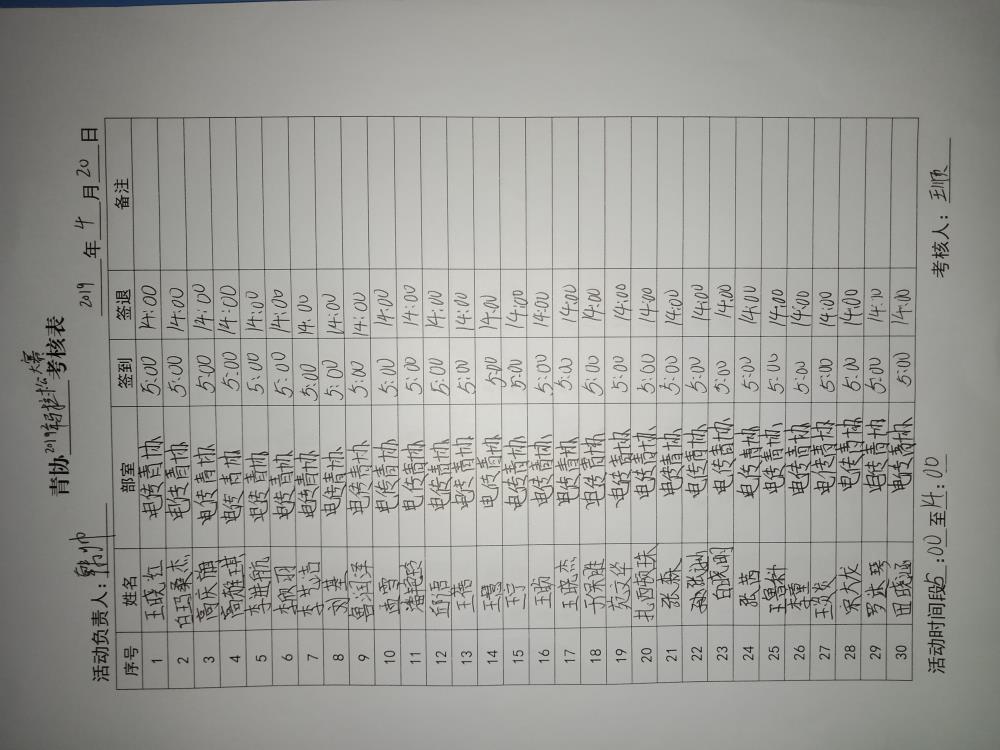 青协2019铁人三项大赛考核表
2019年4月20日
活动负责人：韩帅
序号 姓名 部室 签到 签退 备注
1 王晓红 电传青协 5:00 14:00
2 白玛桑杰 电传青协 5:00 14:00
3 高庆 电传青协 5:00 14:00
4 高雅琪 电传青协 5:00 14:00
5 李进航 电传青协 5:00 14:00
6 电传青协 5:00 14:00
7 李艺洁 电传青协 5:00 14:00
8 刘基 电传青协 5:00 14:00
9 鲁润泽 电传青协 5:00 14:00
10 雪 电传青协 5:00 14:00
11 潘艳玲 电传青协 5:00 14:00
12 邱洁 电传青协 5:00 14:00
13 王蓓 电传青协 5:00 14:00
14 王 电传青协 5:00 14:00
15 王宁 电传青协 5:00 14:00
16 王 电传青协 5:00 14:00
17 王晓杰 电传青协 5:00 14:00
18 于天胜 电传青协 5:00 14:00
19 苑文华 电传青协 5:00 14:00
20 扎西顿珠 电传青协 5:00 14:00
21 张森 电传青协 5:00 14:00
22 电传青协 5:00 14:00
23 白晓明 电传青协 5:00 14:00
24 张茜 电传青协 5:00 14:00
25 王 电传青协 5:00 14:00
26 李童 电传青协 5:00 14:00
27 电传青协 5:00 14:00
28 宋大龙 电传青协 5:00 14:00
29 罗 琴 电传青协 5:00 14:10
30 田 电传青协 5:00 14:00
活动时间段5:00至14:00 考核人：王顺